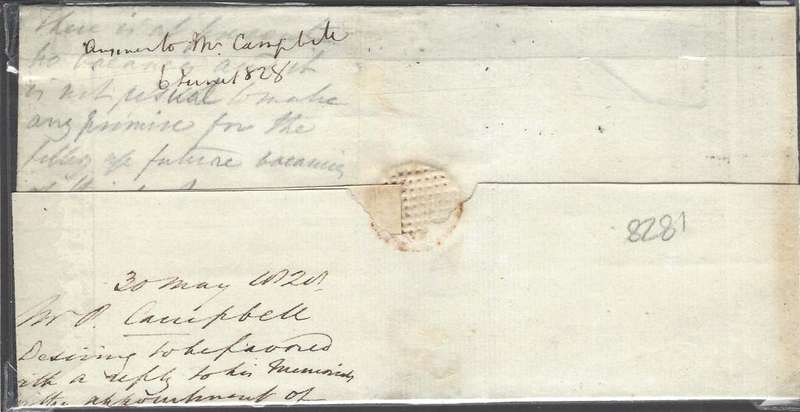 There is at present
no vacancy and it
is not usual to make
any promise for the
filling up future vacancies
Answer to Mr. Campbell
6 June 1828
8281
30 May 1828
Mr P. Campbell
Desiring to be favored
with a reply to his Memorial
appointment of